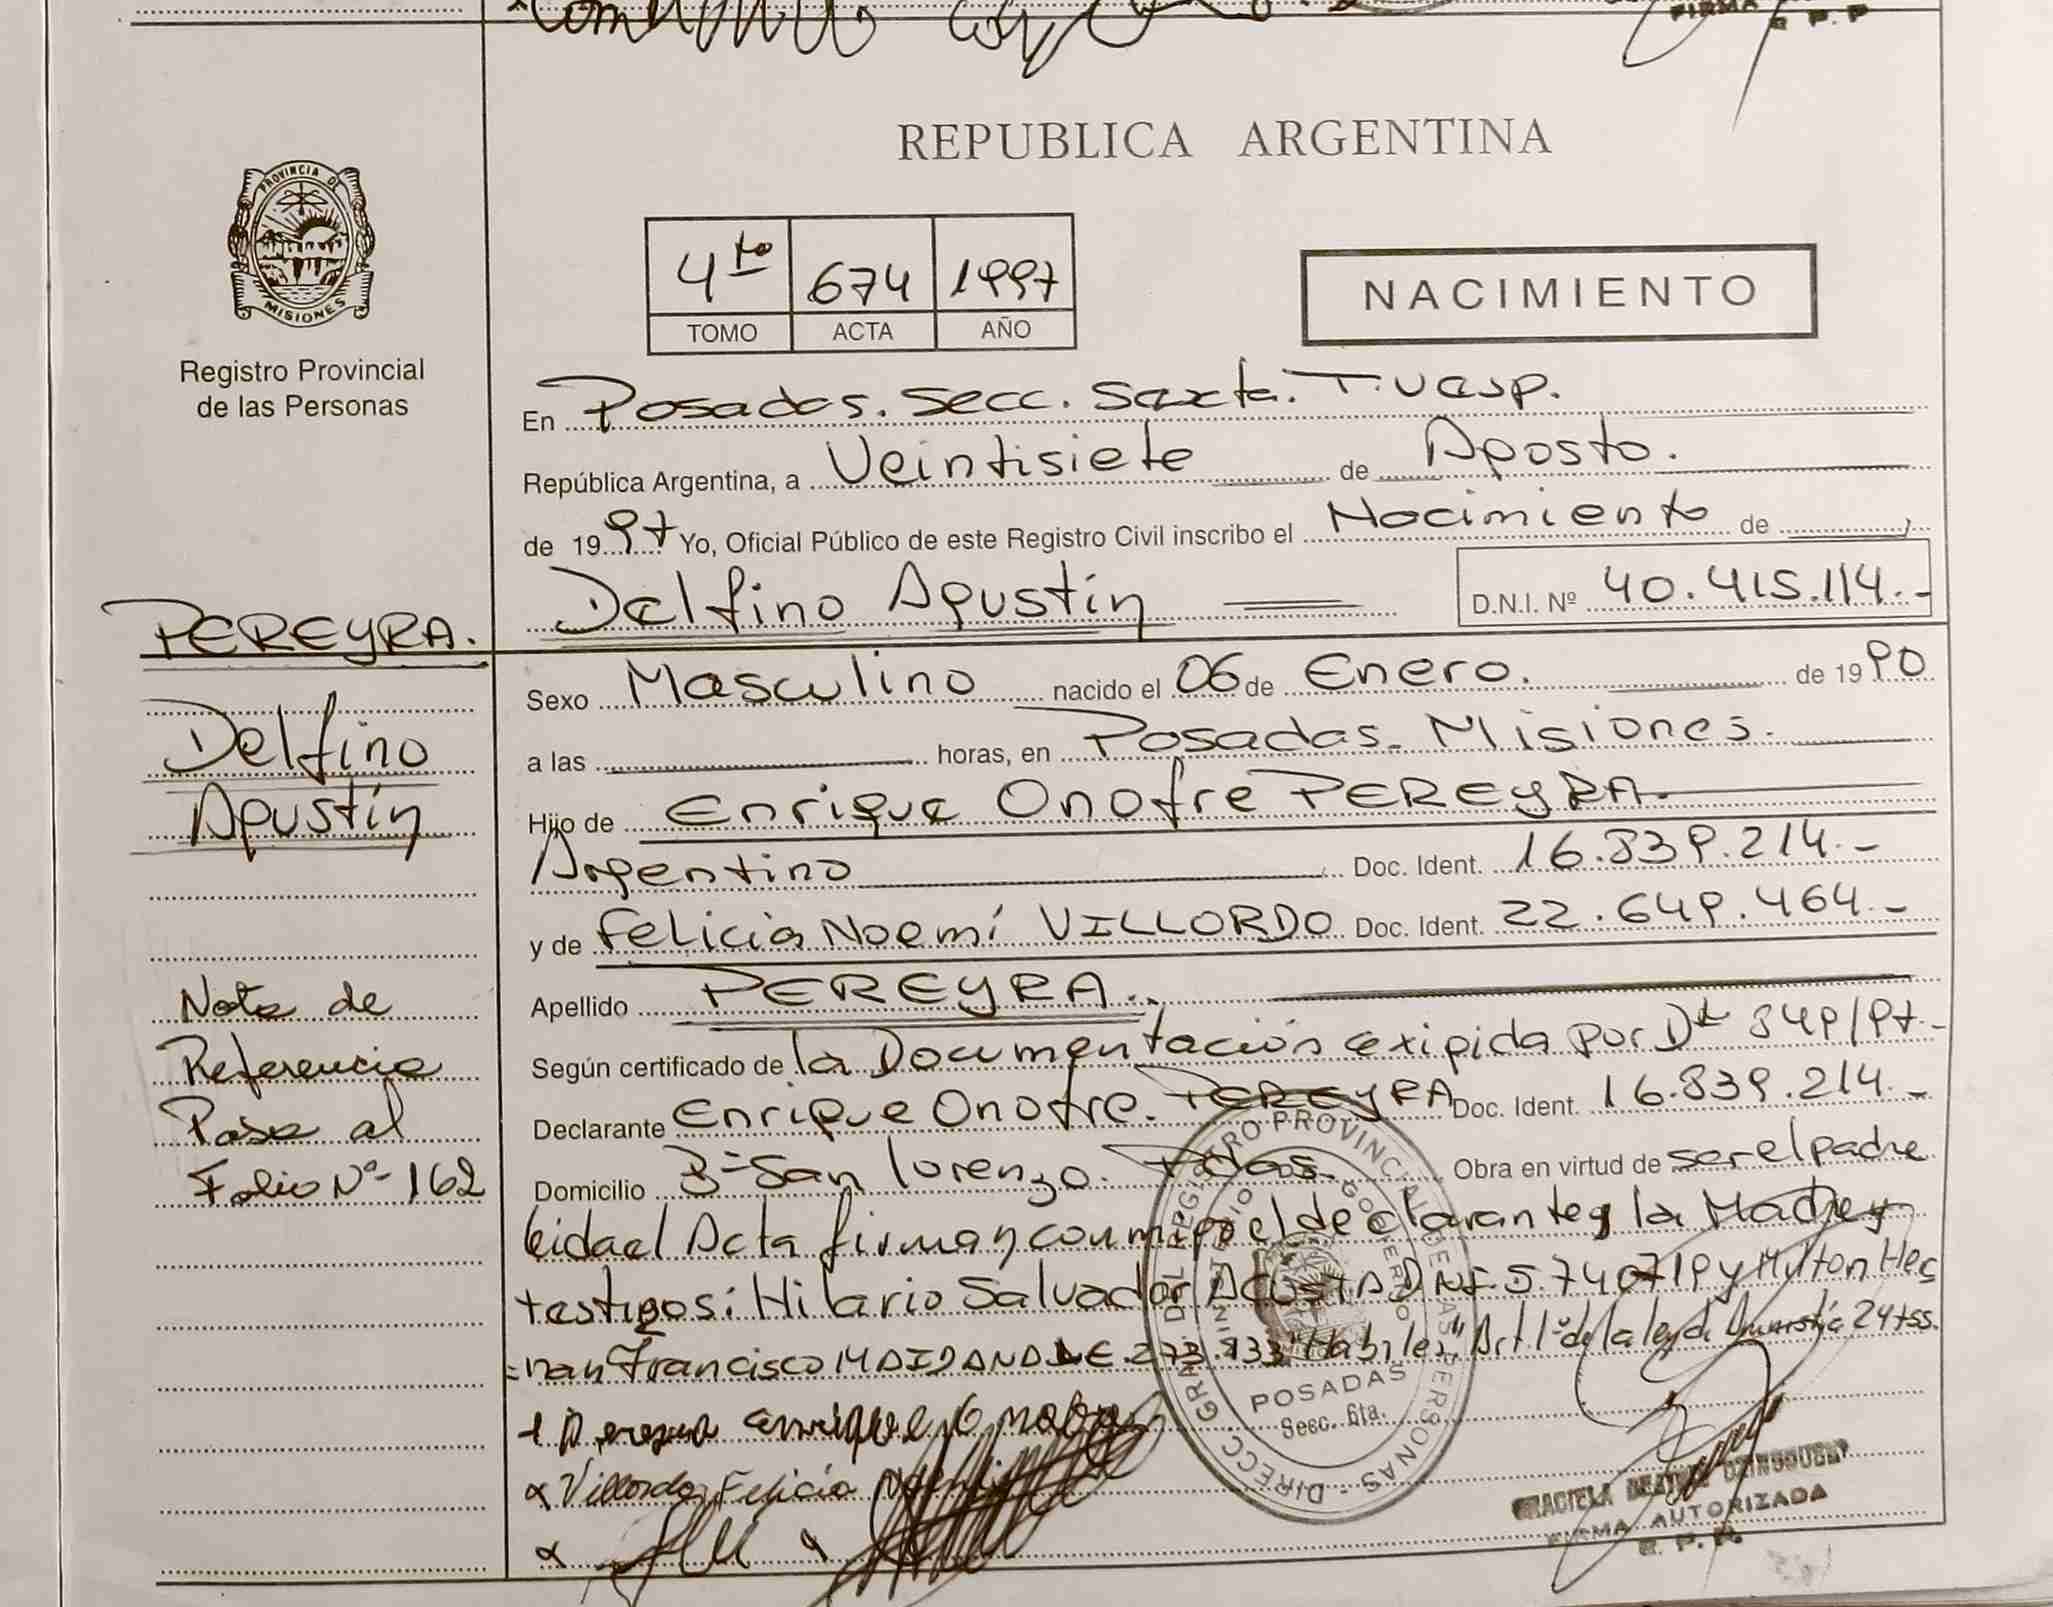 REPUBLICA ARGENTINA
PROVINCIA DE MISIONES
Registro Provincial
de las Personas
4to 674 1997
TOMO ACTA AÑO
NACIMIENTO
En Posadas. Secc. Sexta.
República Argentina, a Veintisiete de Agosto.
de 1997 Yo, Oficial Público de este Registro Civil inscribo el Nacimiento de
Delfino Agustín D.N.I. Nº 40.415.114.-
PEREYRA.
Delfino
Agustín
Sexo Masculino nacido el 06 de Enero. de 1990
a las horas, en Posadas. Misiones.
Hijo de Enrique Onofre PEREYRA.
Argentino Doc. Ident. 16.839.214.-
y de Felicia Noemí VILLORDO Doc. Ident. 22.649.464.-
Apellido PEREYRA.
Según certificado de la Documentación exigida por 849/97.-
Declarante Enrique Onofre. PEREYRA Doc. Ident. 16.839.214.-
Domicilio Bº San Lorenzo. Pdas. Obra en virtud de ser el padre
Leida el Acta firman conmigo el declarante y la Madre y
testigos: Hilario Salvador ACOSTA DNI 5.740719 y Milton Hec
=nan Francisco MAIDANA 273.933 "Habiles" Art. 1º de la ley de Amnistía 24
Nota de
Referencia
Pasa al
Folio Nº 162
Villordo, Felicia Noemi
DIRECC. GRAL. DEL REGISTRO PROVINCIAL DE LAS PERSONAS
MINISTERIO GOBIERNO
POSADAS
Secc. 6ta.
GRACIELA BEATRIZ
FIRMA AUTORIZADA
R. P. P.